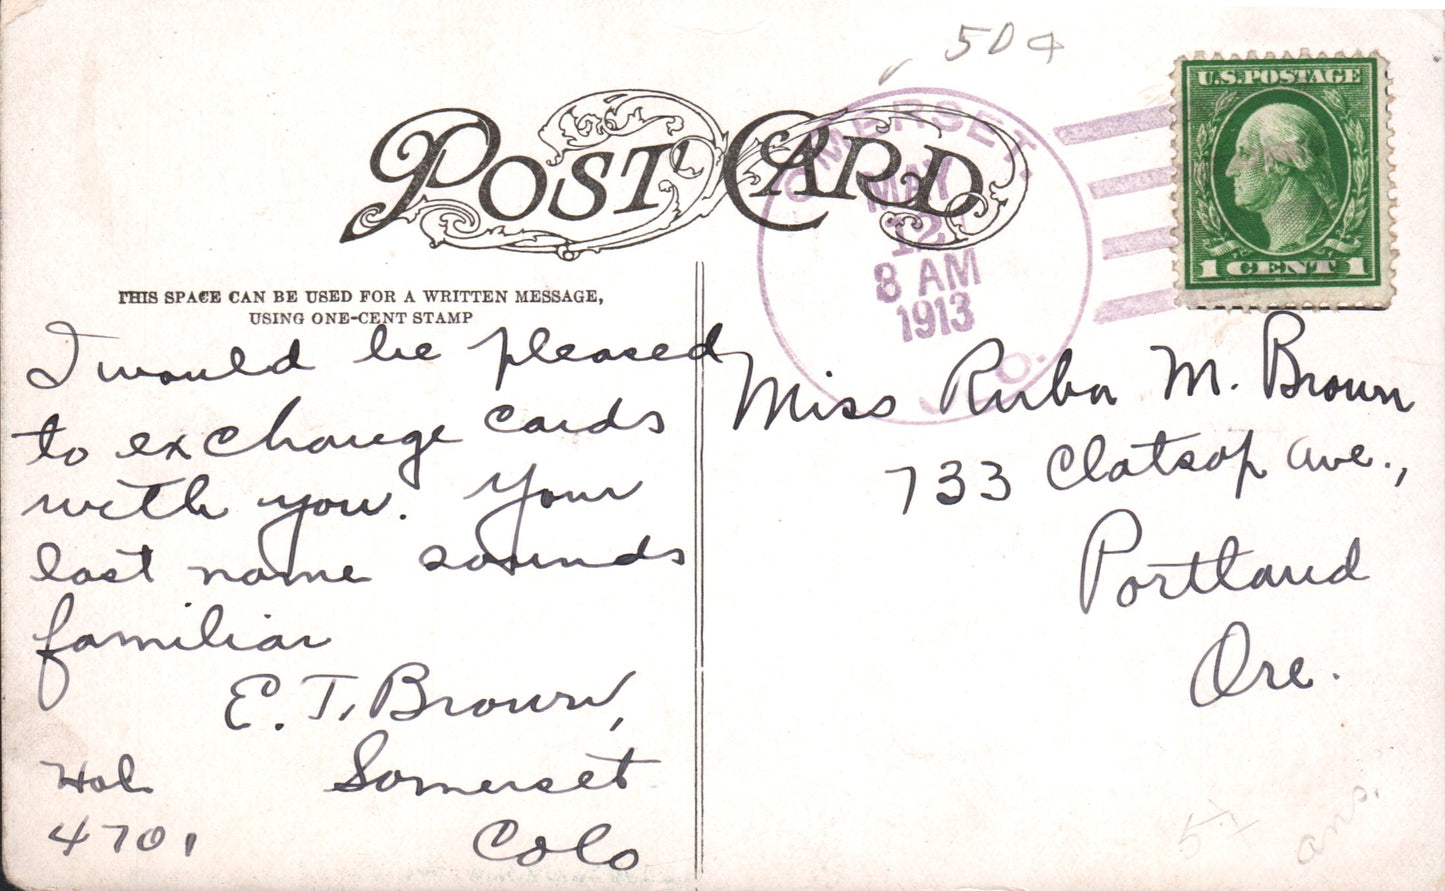 50¢
POST CARD
SOMERSET.
MAY
12
8 AM
1913
O.
U.S.POSTAGE
1 CENT 1
THIS SPACE CAN BE USED FOR A WRITTEN MESSAGE,
USING ONE-CENT STAMP
I would be pleased
to exchange cards
with you. Your
last name sounds
familiar
E. T. Brown,
Somerset
Colo
4701
Miss Ruba M. Brown
733 Clatsop Ave.,
Portland
Ore.
ans.